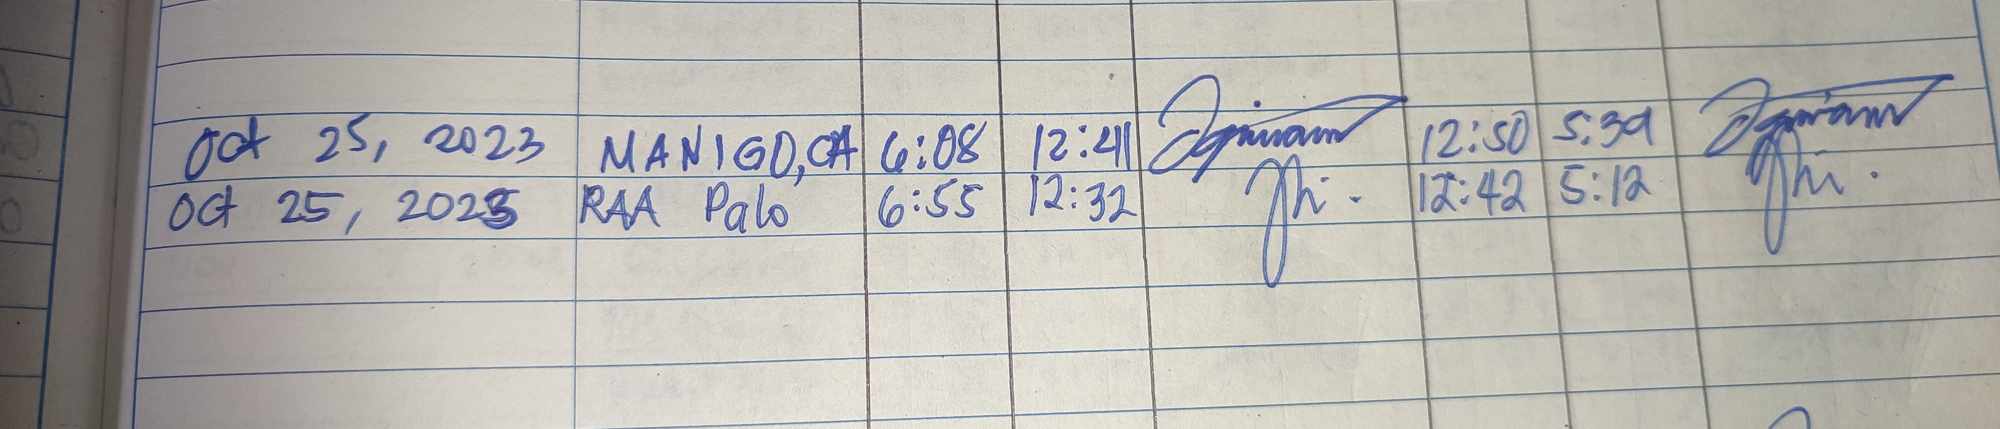 Oct 25, 2023 MANIGO,CA 6:08 12:41 12:50 5:39
Oct 25, 2023 RAA Palo 6:55 12:32 12:42 5:12